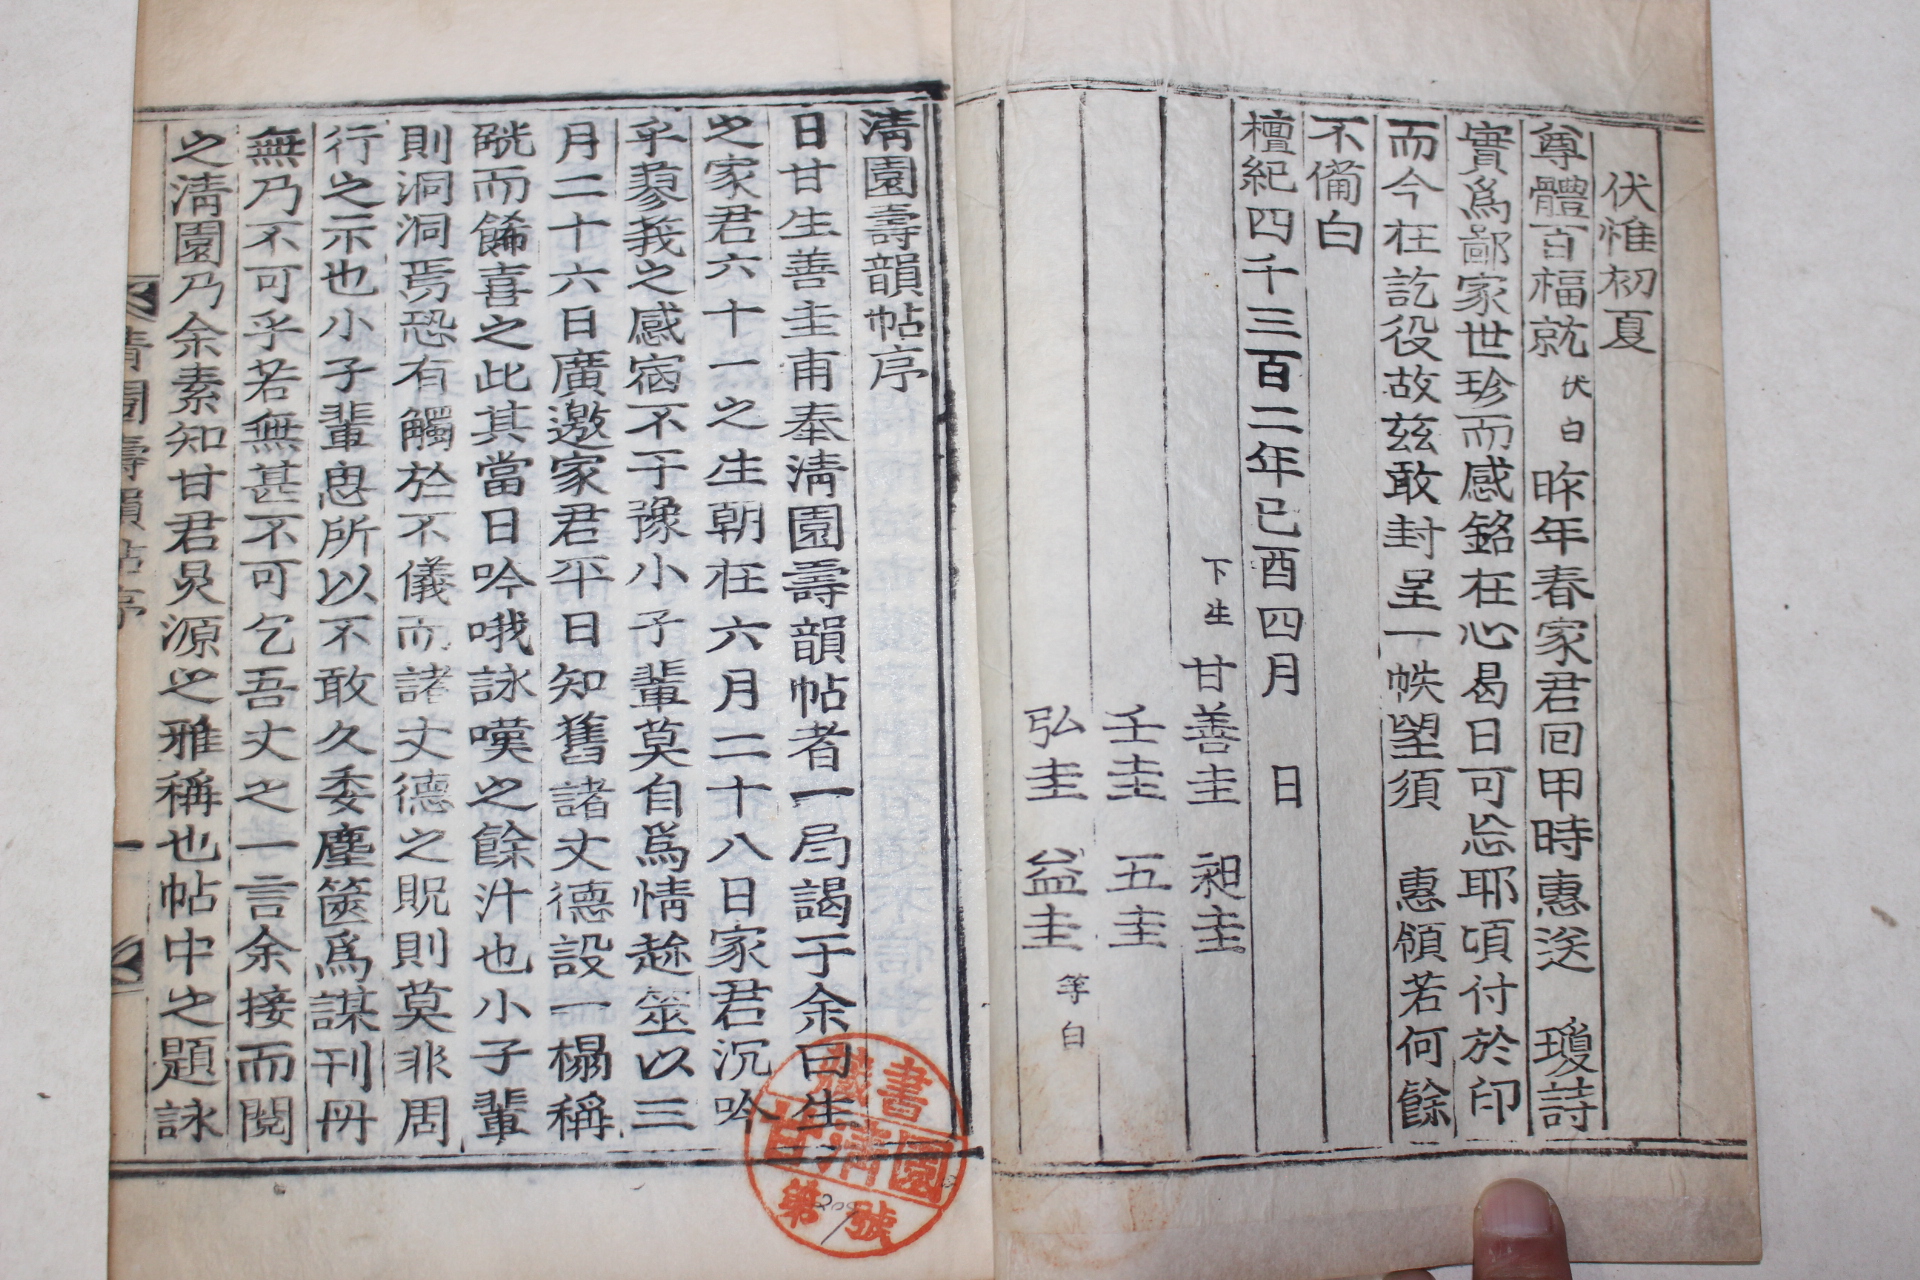 伏惟初夏
尊體百福就伏白昨年春家君回甲時惠送　瓊詩
實爲鄙家世珍而感銘在心曷日可忘耶頃付於印
而今在訖役故玆敢封呈一帙望須　惠領若何餘
不備白
檀紀四千三百二年己酉四月　日
下生　甘善圭　昶圭
壬圭　五圭
弘圭　益圭　等白
淸園壽韻帖序
日甘生善圭甫奉淸園壽韻帖者一局謁于余曰生
之家君六十一之生朝在六月二十八日家君沉吟
乎蓼莪之感宿不于豫小子輩莫自爲情趁筮以三
月二十六日廣邀家君平日知舊諸丈德設一榻稱
觥而餙喜之此其當日吟哦詠嘆之餘汁也小子輩
則洞洞焉恐有觸於不儀而諸丈德之貺則莫非周
行之示也小子輩思所以不敢久委塵篋爲謀刊册
無乃不可乎若無甚不可乞吾丈之一言余接而閱
之淸園乃余素知甘君炅源之雅稱也帖中之題詠
淸園壽韻帖序
一
藏書
甘淸園
第209號